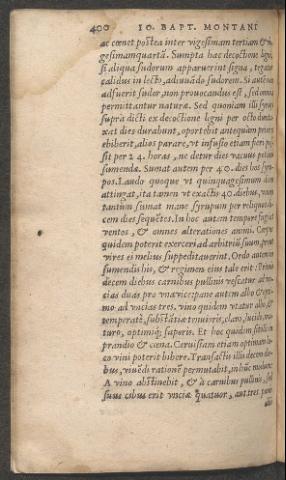 400 IO. BAPT. MONTANI
ac cœnet postea inter vigesimam tertiam & vi-
gesimamquartā. Sumpta hac decoctione ligni,
si aliqua sudorum apparuerint signa, tegatur
calidus in lecto, adiuuādo sudorem. Si autem nō
adfuerit sudor, non prouocandus est, sed omnia
permittantur naturæ. Sed quoniam illi syrupi
supra dicti ex decoctione ligni per octo duntaxat
xat dies durabunt, oportebit antequàm primus
ebiberit, alios parare, vt infusio etiam fieri pos-
sit per 24. horas, ne detur dies vacuus potionis
sumendæ. Sumat autem per 40. dies hos syru-
pos. Laudo quoque vt quinquagesimum diem
attingat, ita tamen vt exactis 40 diebus, vnum
tantùm sumat manè syrupum per reliquos de-
cem dies sequētes. In hoc autem tempore fugiat
ventos, & omnes alterationes animi. Corpus
quidem poterit exerceri ad arbitriū suum, prout
vires ei melius suppeditauerint. Ordo autem in
sumendis his, & regimen eius tale erit: Primis
decem diebus carnibus pullinis vescatur ad vn-
cias duas pro vna vice: pane autem albo & opti-
mo ad vncias tres, vino quidem vtatur albo, &
temperatè, substātiæ tenuioris, claro, lucido, ma-
turo, optimiq; saporis. Et hoc quidem fiet in
prandio & cœna. Ceruisiam etiam optimam lo-
co vini poterit bibere. Transactis illis decem die-
bus, viuēdi rationē permutabit, in hūc modum:
A vino abstinebit, & à carnibus pullinis, sed
suus cibus erit vnciæ quatuor, aut tres panis